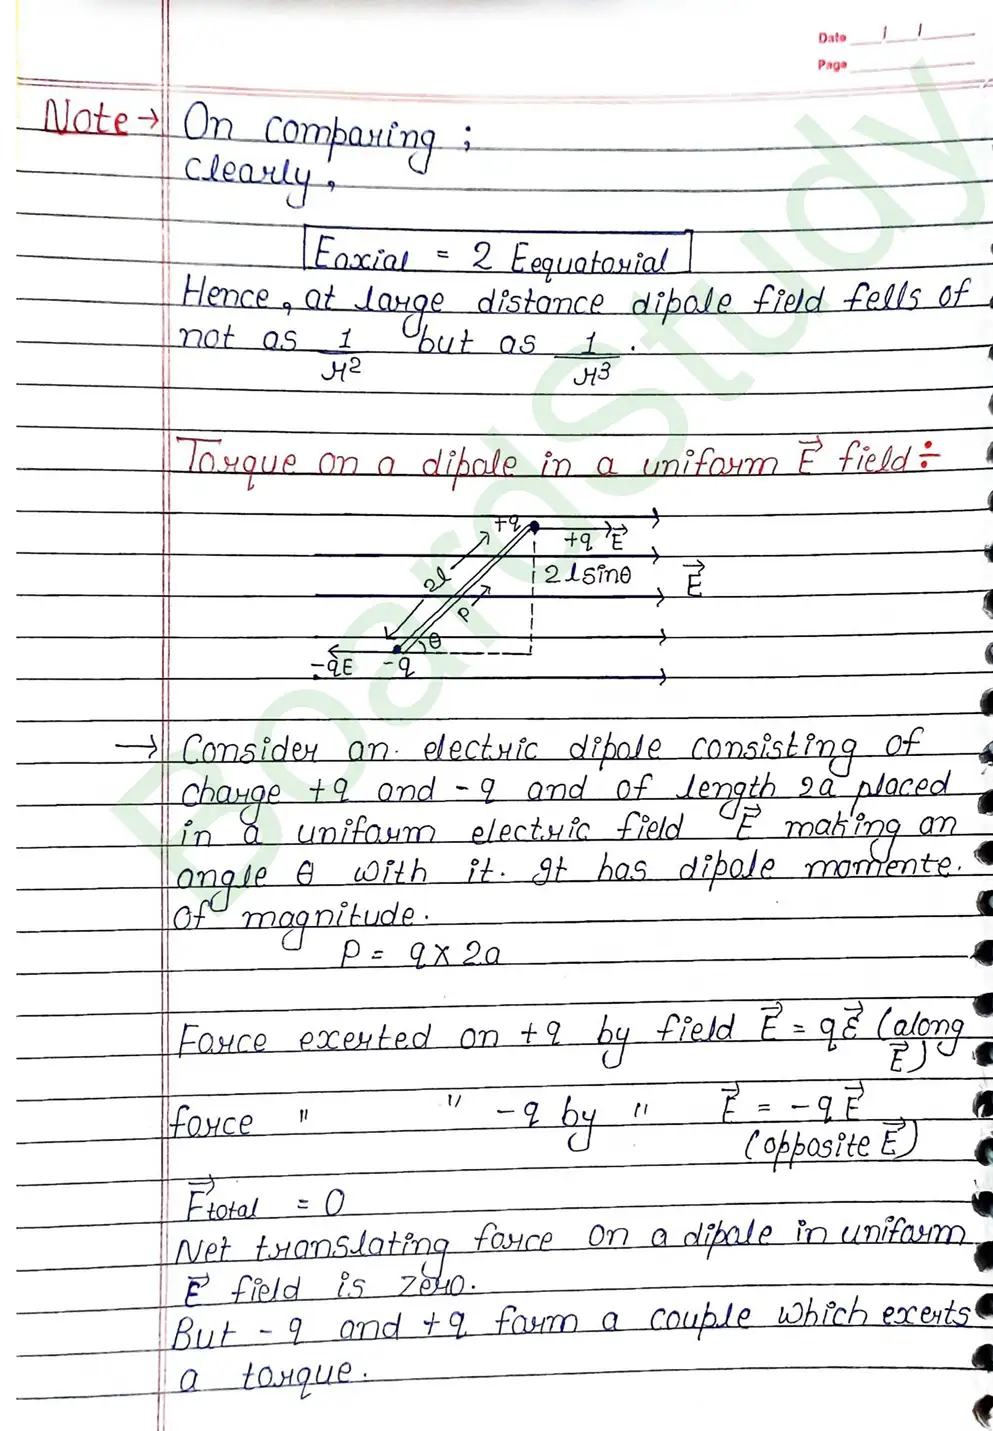 Date / /
Page
Note → On comparing ;
clearly,
Eaxial = 2 Eequatorial
Hence, at large distance dipole field fells of
not as 1/r2 but as 1/r3 .
Torque on a dipole in a uniform E⃗ field ÷
+q
+q E⃗
2l
2lsinθ
E⃗
P
θ
-qE -q
→ Consider an. electric dipole consisting of
charge +q and -q and of length 2a placed
in a uniform electric field E⃗ making an
angle θ with it. It has dipole momente.
of magnitude.
P = q x 2a
Force exerted on +q by field E⃗ = qE⃗ (along
E⃗)
force " " -q by " E⃗ = -qE⃗
(opposite E⃗)
F⃗total = 0
Net translating force on a dipole in uniform
E⃗ field is zero.
But -q and +q form a couple which exerts
a torque.
BoardStudy